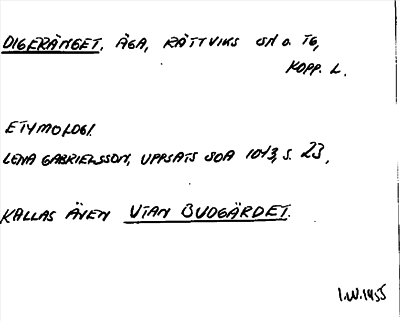 DIGERÄNGET, ÄGA, RÄTTVIKS SN O. TG,
KOPP. L.
ETYMOLOGI.
LENA GABRIELSSON, UPPSATS SOA 1073, S. 23,
KALLAS ÄVEN UTAN BUDGÄRDET.
I.W. 1955